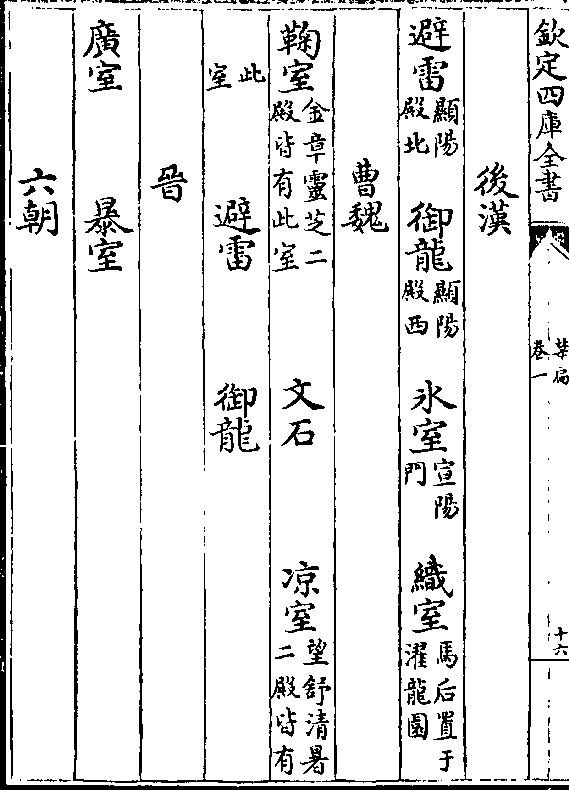 欽定四庫全書
禁扁
卷一
十六
後漢
避雷顯陽殿北 御龍顯陽殿西 氷室宣陽門 織室馬后置于濯龍園
曹魏
鞠室金章靈芝二殿皆有此室 文石 凉室望舒清暑二殿皆有
此室 避雷 御龍
晉
廣室 暴室
六朝